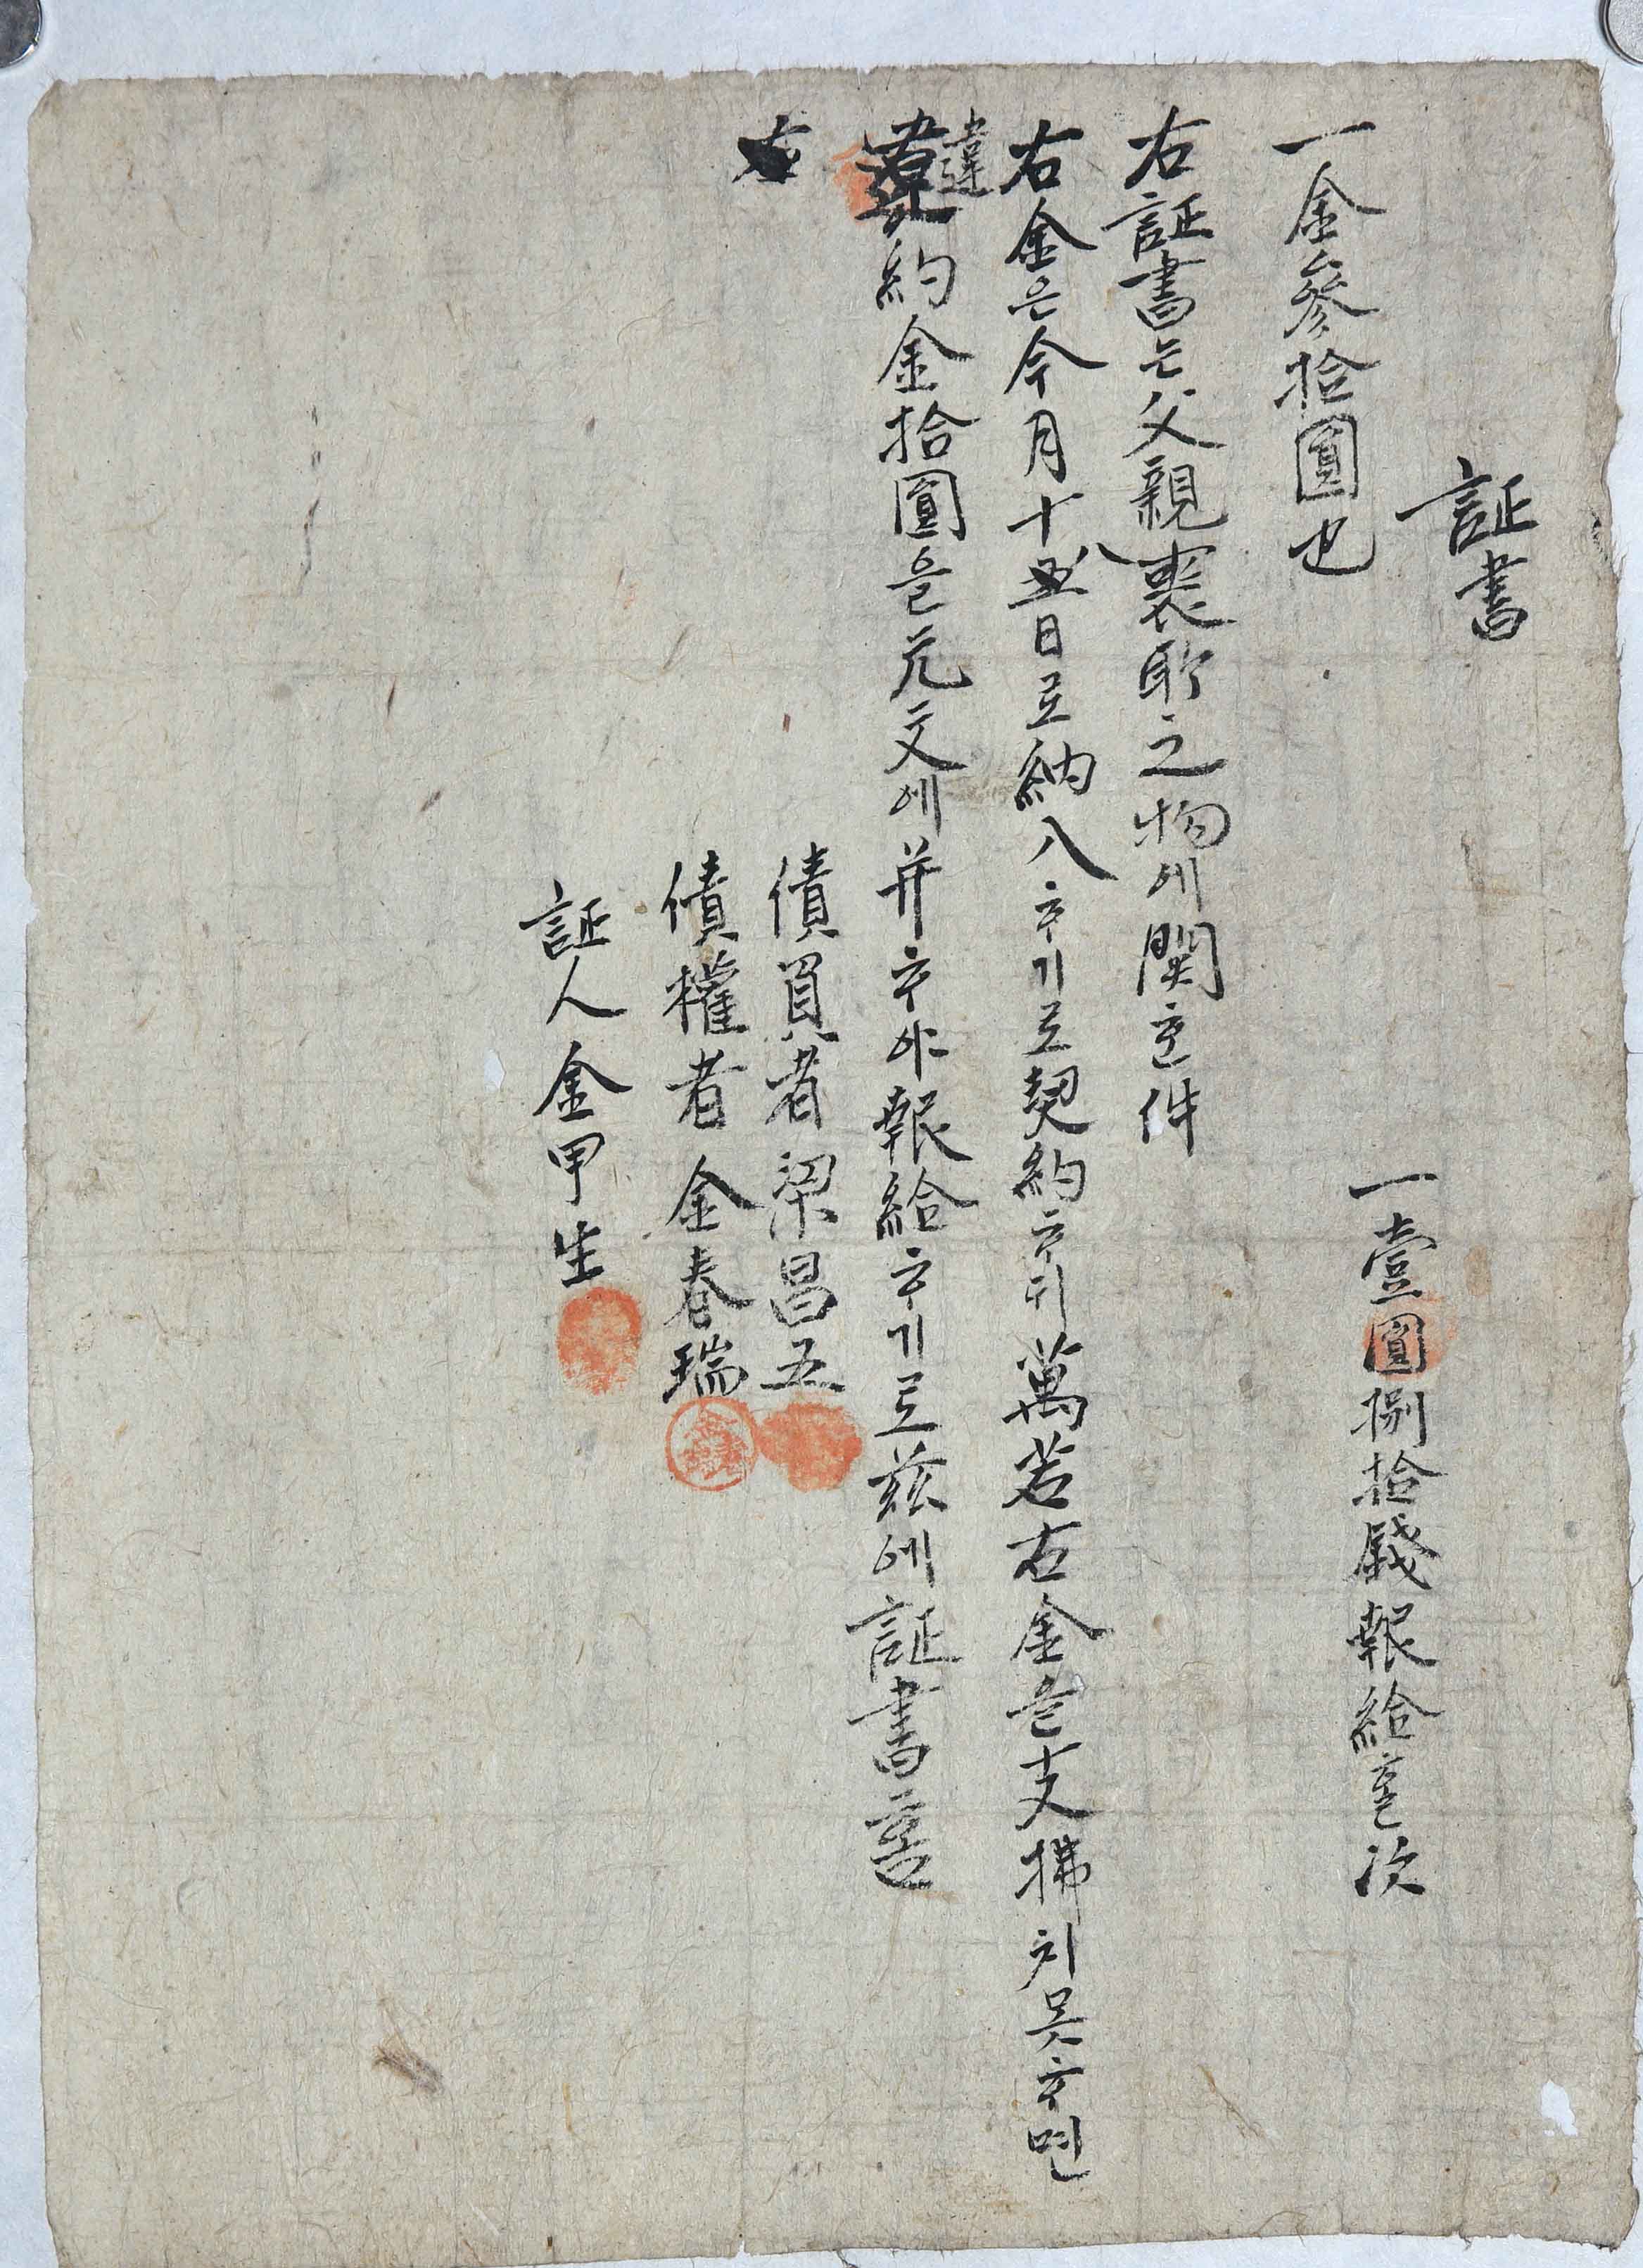 証書
一壹圓捌拾錢報給ᄒᆞᆯ次
一金參拾圓也
右証書는父親喪 之物에関ᄒᆞᆫ件
右金은今月十八日로納入ᄒᆞ기로契約ᄒᆞ되萬若右金을支拂치못ᄒᆞ면
違約金拾圓을元文에并ᄒᆞ야報給ᄒᆞ기로玆에証書홈
債負者梁昌五
債權者金春瑞
証人金甲生